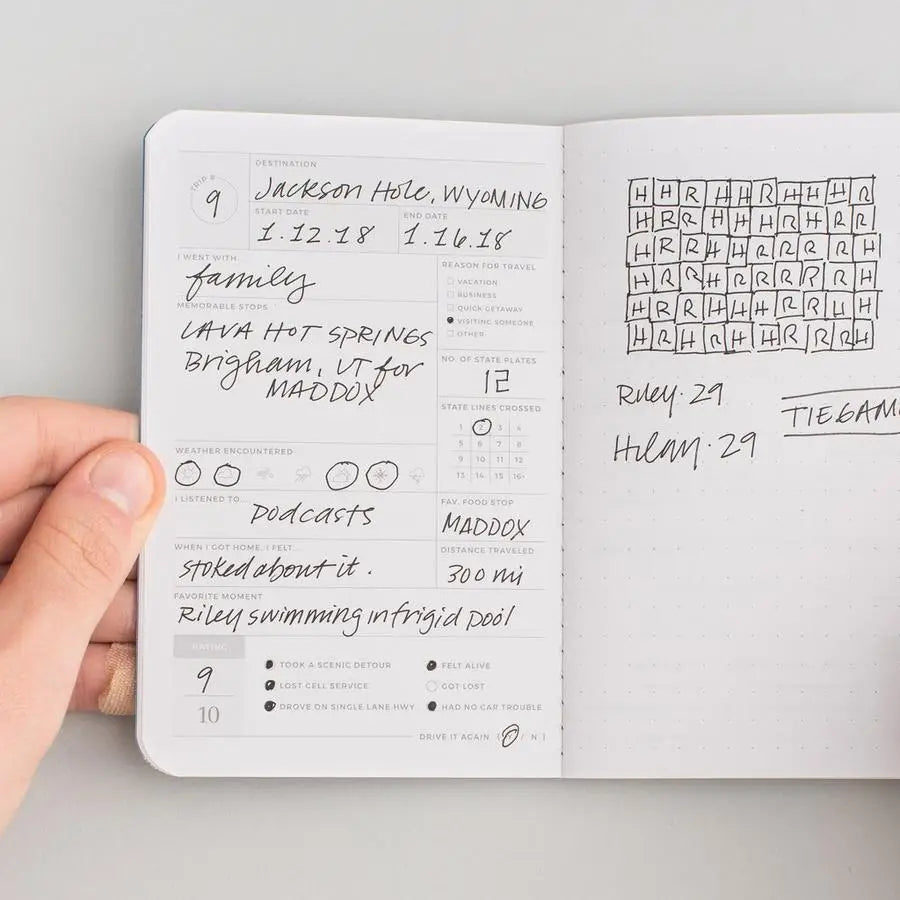 TRIP #
9
DESTINATION
Jackson Hole, WYOMING
START DATE
1.12.18
END DATE
1.16.18
I WENT WITH...
family
REASON FOR TRAVEL
VACATION
BUSINESS
QUICK GETAWAY
VISITING SOMEONE
OTHER
MEMORABLE STOPS
LAVA HOT SPRINGS
Brigham, UT for
MADDOX
NO. OF STATE PLATES
12
STATE LINES CROSSED
1 2 3 4
5 6 7 8
9 10 11 12
13 14 15 16+
WEATHER ENCOUNTERED
I LISTENED TO...
podcasts
FAV. FOOD STOP
MADDOX
WHEN I GOT HOME, I FELT...
stoked about it.
DISTANCE TRAVELED
300 mi
FAVORITE MOMENT
Riley swimming in frigid pool
RATING
9
10
TOOK A SCENIC DETOUR
LOST CELL SERVICE
DROVE ON SINGLE LANE HWY
FELT ALIVE
GOT LOST
HAD NO CAR TROUBLE
DRIVE IT AGAIN ( Y / N )
H H R H H R H H H R
H R R H H H R H R R
H R R H H R R R R H
H R R H R R R R R H
H R R H H H R R H H
H R H R H H R R R H
Riley · 29
Hilary · 29
TIEGAM